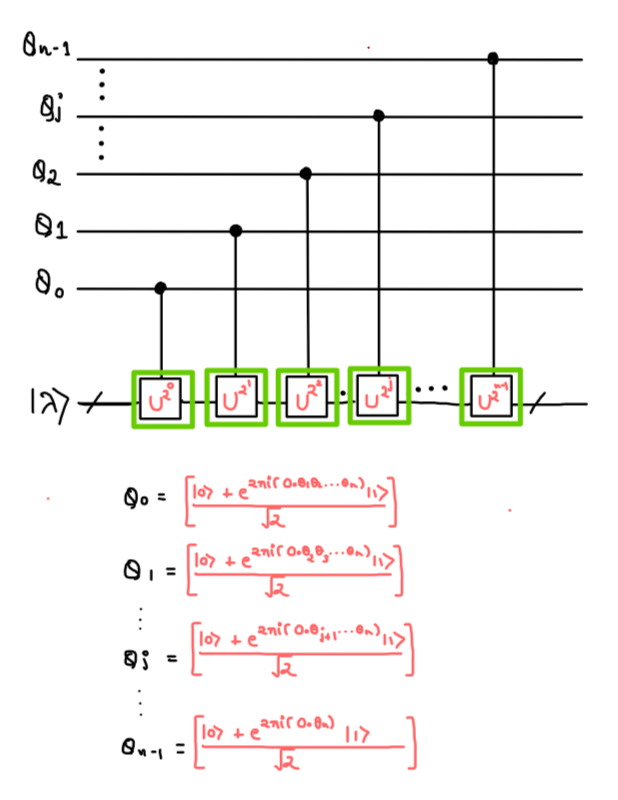 Q_{n-1}
Q_j
Q_2
Q_1
Q_0
|λ⟩ U^{2^0} U^{2^1} U^{2^2} U^{2^j} ... U^{2^{n-1}}
Q_0 = [ (|0⟩ + e^{2πi(0.θ_1θ_2...θ_n)} |1⟩) / √2 ]
Q_1 = [ (|0⟩ + e^{2πi(0.θ_2θ_3...θ_n)} |1⟩) / √2 ]
Q_j = [ (|0⟩ + e^{2πi(0.θ_{j+1}...θ_n)} |1⟩) / √2 ]
Q_{n-1} = [ (|0⟩ + e^{2πi(0.θ_n)} |1⟩) / √2 ]